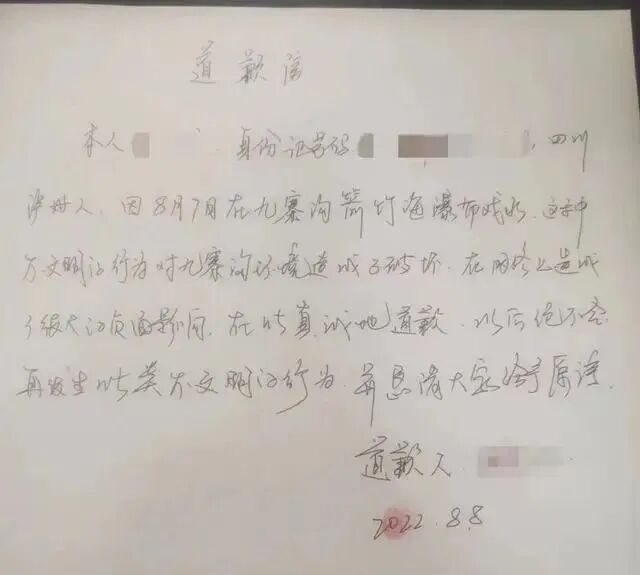 道歉信
本人 身份证号码 ,四川
人,因8月7日在九寨沟箭竹海瀑布戏水,这种
不文明的行为对九寨沟环境造成了破坏.在网络上造成
了很大的负面影响,在此真诚地道歉.以后绝不会
再发生此类不文明的行为.并恳请大家给予原谅.
道歉人
2022.8.8